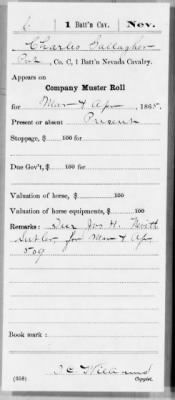 1 Batt'n Cav. Nev.
Charles Gallagher
Co. C, 1 Batt'n Nevada Cavalry.
Appears on
Company Muster Roll
for Mar & Apr, 1865.
Present or absent Present
Stoppage, $ 100 for
Due Gov't, $ 100 for
Valuation of horse, $ 100
Valuation of horse equipments, $ 100
Remarks: Due Jos H.
Sutler for Mar & Ap
5.09
Book mark:
(358) Copyist.